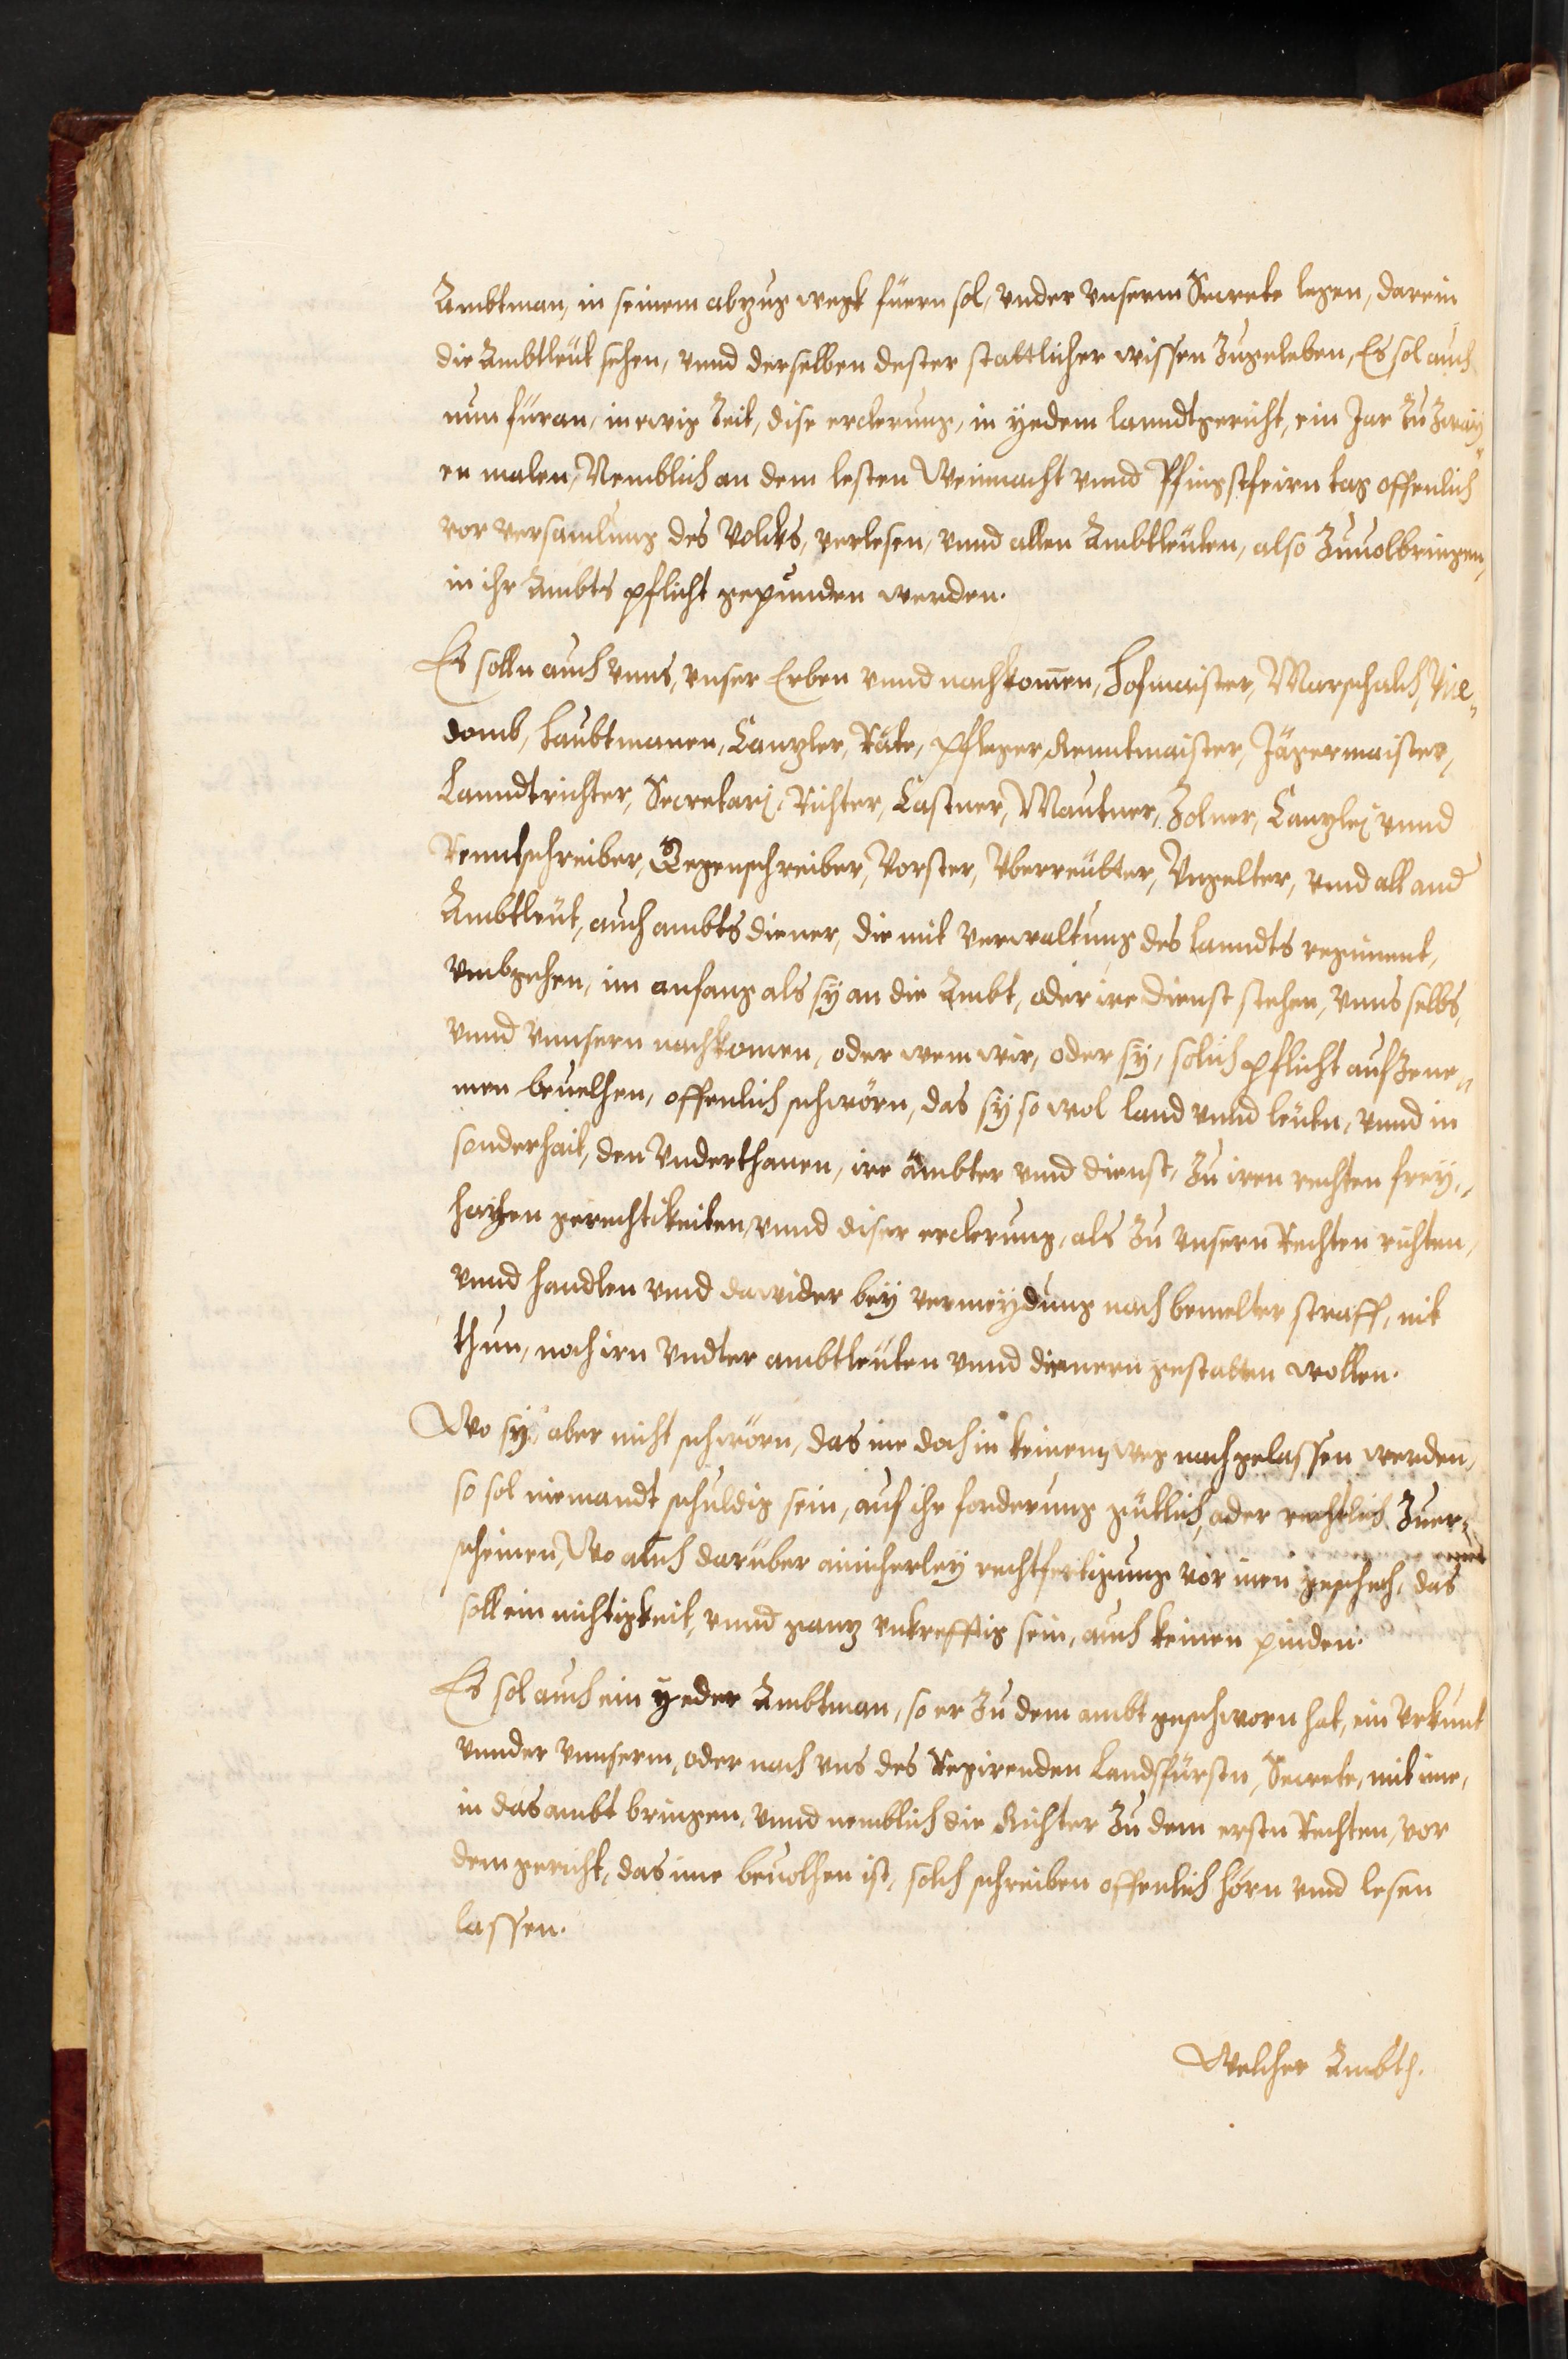 Ambtman, in seinem abzug wegk füern sol, vnder vnserm Secrete legen, darein
die Ambtleüt sehen, vnnd derselben dester stattlicher wissen Zugeleben, Es sol auch
nun füran, in ewig Zeit, dise erclerung, in yedem lanndtgericht, ein Jar Zu Zway„
en malen, Nemblich an dem lesten Weinnacht vnnd Pfingstfeirn tag offenlich
vor versamlung des Volcks, verlesen, vnnd allen Ambtleüten, also Zuuolbringen,
in ihr Ambts pflicht gepunden werden.
Es solln auch vnns, vnser Erben vnnd nachkomen, Hofmaister, Marschalch, Vice„
domb, haubtmanen, Canzler, Räte, Pfleger, Renntmaister, Jägermaister,
Lanndtrichter, Secretarj, Richter, Castner, Mautner, Zolner, Canzlej vnnd
Renntschreiber, Gegenschreiber, Vorster, Vberreütter, Vngelter, vnnd all and
Ambtleüt, auch ambts diener, die mit verwaltung des lanndts regiment,
vmbgehen, im anfang als sy an die Ambt, oder ire dienst stehen, vnns selbs,
vnnd vnnsern nachkomen, oder wem wir, oder sy, solich pflicht aufzene„
men beuelhen, offenlich schwörn, das sy so wol land vnnd leütn, vnnd in
sonderhait, den vnderthanen, ire ämbter vnnd dienst, Zu iren rechten frey„
haiten gerechtikeiten, vnnd diser erclerung, als Zu vnsern Rechten richten,
vnnd handlen vnnd dawider bey vermeydung nachbemelter straff, nit
thun, noch irn vndter ambtleüten vnnd dienern gestatten wollen.
Wo sy aber nicht schwörn, das ine doch in keinem weg nachgelassen werden,
so sol niemandt schuldig sein, auf ihr forderung gütlich, oder rechtlich Zuer„
scheinen, Wo auch darüber ainicherley rechtfertigung vor inen geschech, das
soll ein nichtigkeit, vnnd ganz vnkrefftig sein, auch keinen pinden.
Es sol auch ein yeder Ambtman, so er Zu dem ambt geschworn hat, ein Vrkunt
vnnder vnnserm, oder nach vns des Regirenden Landsfürstn, Secrete, mit ime,
in das ambt bringen, vnnd nemblich die Richter Zu dem erstn Rechten, vor
dem gericht, das ime beuolhen ist, solch schreiben offenlich hörn vnnd lesen
lassen.
Welcher Ambtm.